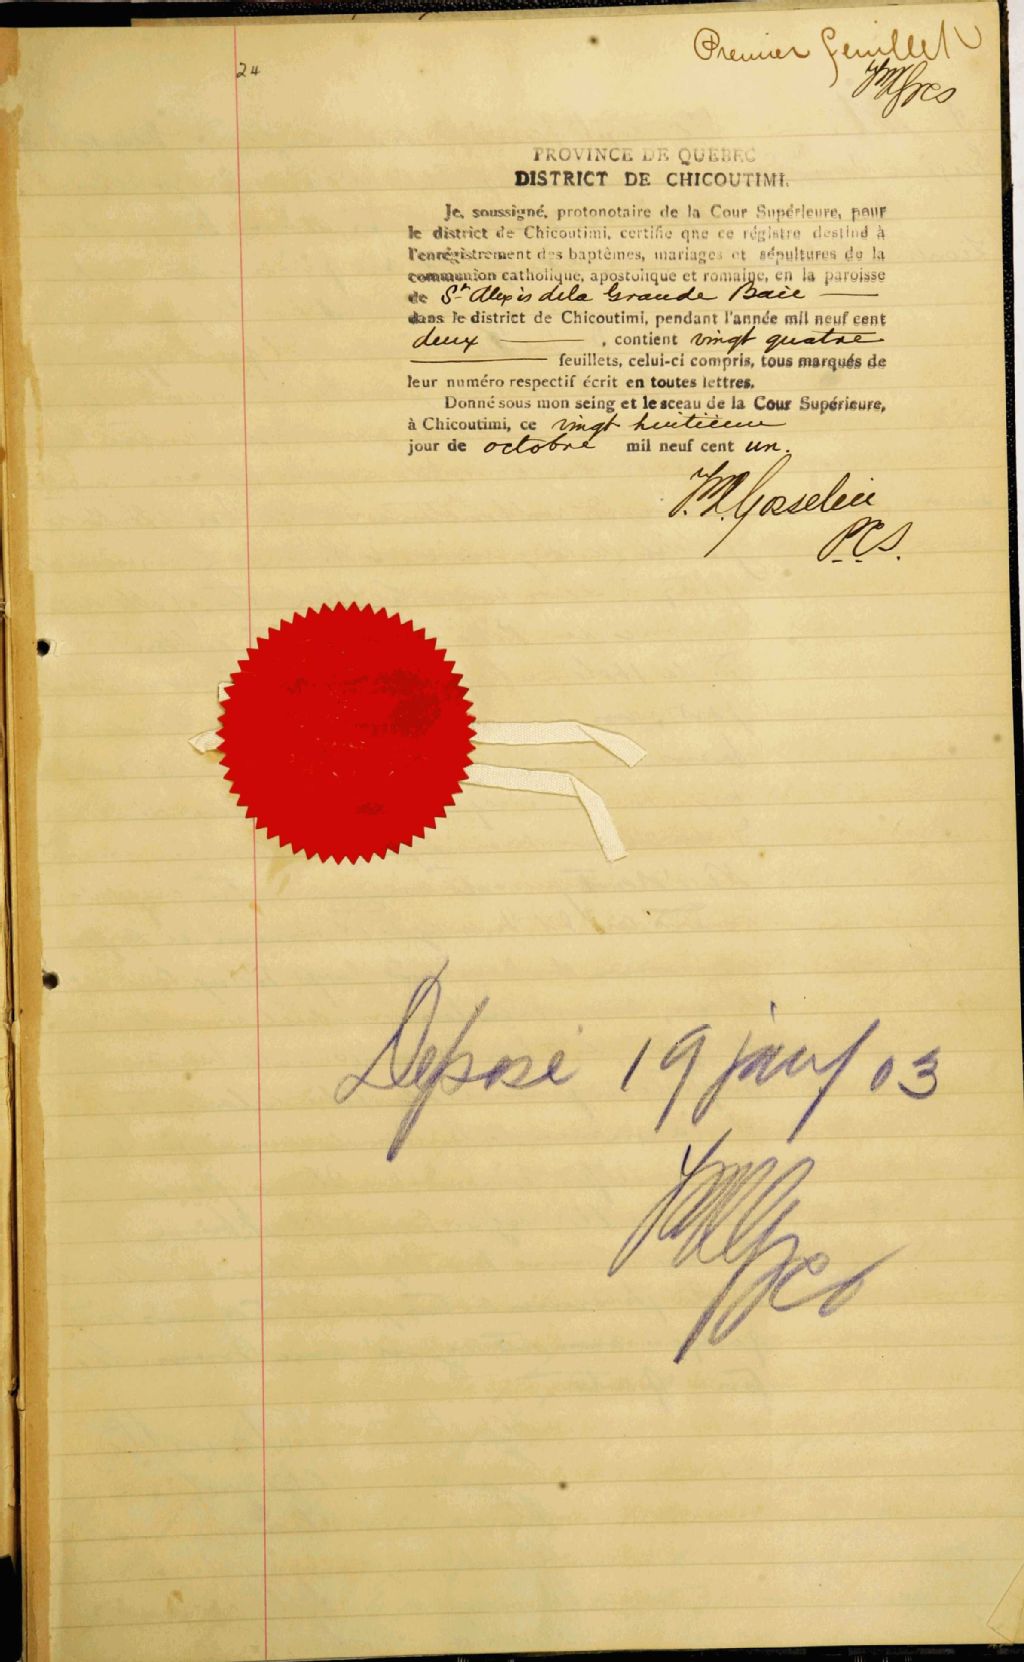 24
Premier feuillet
PROVINCE DE QUEBEC
DISTRICT DE CHICOUTIMI.
Je, soussigné, protonotaire de la Cour Supérieure, pour
le district de Chicoutimi, certifie que ce régistre destiné à
l'enrégistrement des baptêmes, mariages et sépultures de la
communion catholique, apostolique et romaine, en la paroisse
de St Alexis de la Grande Baie
dans le district de Chicoutimi, pendant l'année mil neuf cent
deux , contient vingt quatre
feuillets, celui-ci compris, tous marqués de
leur numéro respectif écrit en toutes lettres.
Donné sous mon seing et le sceau de la Cour Supérieure,
à Chicoutimi, ce vingt huitième
jour de octobre mil neuf cent un.
Gosselin
P.C.S.
Déposé 19 janv 03